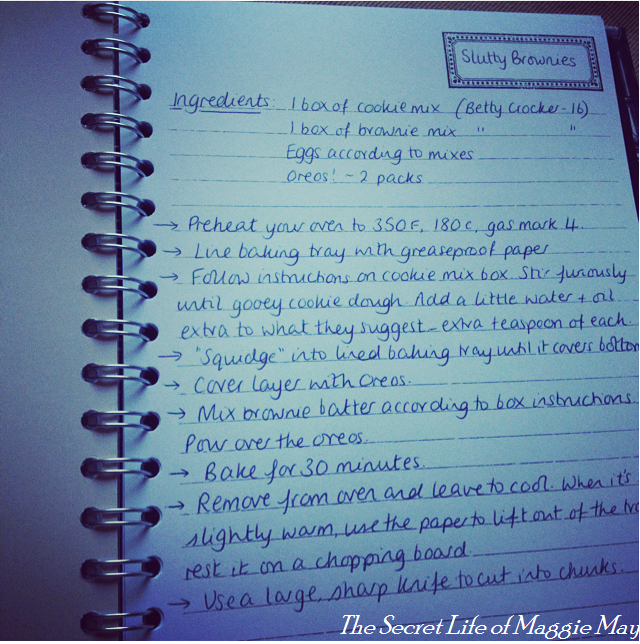 Slutty Brownies
Ingredients: 1 box of cookie mix (Betty Crocker - 16)
1 box of brownie mix " "
Eggs according to mixes
Oreos! ~ 2 packs
→ Preheat your oven to 350F, 180c, gas mark 4.
→ Line baking tray with greaseproof paper
→ Follow instructions on cookie mix box. Stir furiously
until gooey cookie dough. Add a little water + oil
extra to what they suggest - extra teaspoon of each
→ "Squidge" into lined baking tray until it covers bottom
→ Cover layer with oreos.
→ Mix brownie batter according to box instructions.
Pour over the oreos.
→ Bake for 30 minutes.
→ Remove from oven and leave to cool. When it's
slightly warm, use the paper to lift out of the
rest it on a chopping board.
→ Use a large, sharp knife to cut into chunks.
The Secret Life of Maggie May